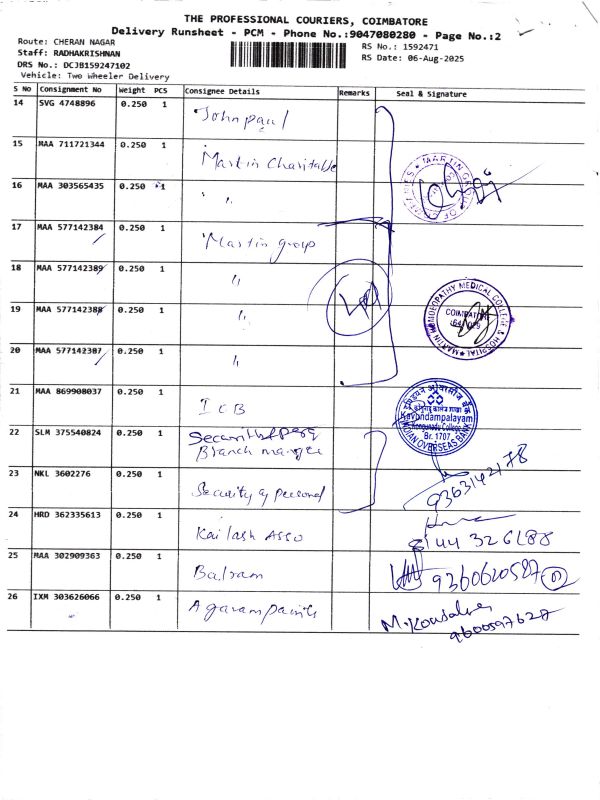 THE PROFESSIONAL COURIERS, COIMBATORE
Delivery Runsheet - PCM - Phone No.:9047080280 - Page No.:2
Route: CHERAN NAGAR
Staff: RADHAKRISHNAN
DRS No.: DCJB159247102
Vehicle: Two Wheeler Delivery
RS No.: 1592471
RS Date: 06-Aug-2025
S No Consignment No Weight PCS Consignee Details Remarks Seal & Signature
14 SVG 4748896 0.250 1 John paul
15 MAA 711721344 0.250 1 Martin Charitable
16 MAA 303565435 0.250 1 "
17 MAA 577142384 0.250 1 Martin group
18 MAA 577142389 0.250 1 "
19 MAA 577142388 0.250 1 "
20 MAA 577142387 0.250 1 "
21 MAA 869908037 0.250 1 ICB
22 SLM 375540824 0.250 1
Branch manager
23 NKL 3602276 0.250 1 Security & personal
24 HRD 362335613 0.250 1 Kailash Asso
25 MAA 302909363 0.250 1 Balram
26 IXM 303626066 0.250 1 Agaram paints
MARTIN GROUP OF
MARTIN HOMOEOPATHY MEDICAL COLLEGE & HOSPITAL
COIMBATORE
Kavundampalayam
Kongunadu College
Br. 1707
INDIAN OVERSEAS BANK
9363142178
8144 326188
9360620527
M. Kousalya
9600597627